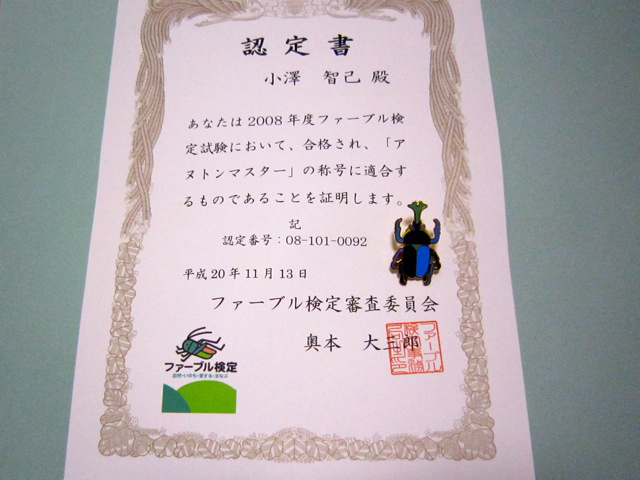 認定書
小澤 智己 殿
あなたは2008年度ファーブル検
定試験において、合格され、「ア
ヌトンマスター」の称号に適合す
るものであることを証明します。
記
認定番号：08-101-0092
平成20年11月13日
ファーブル検定審査委員会
奥本 大三郎
ファーブル検定